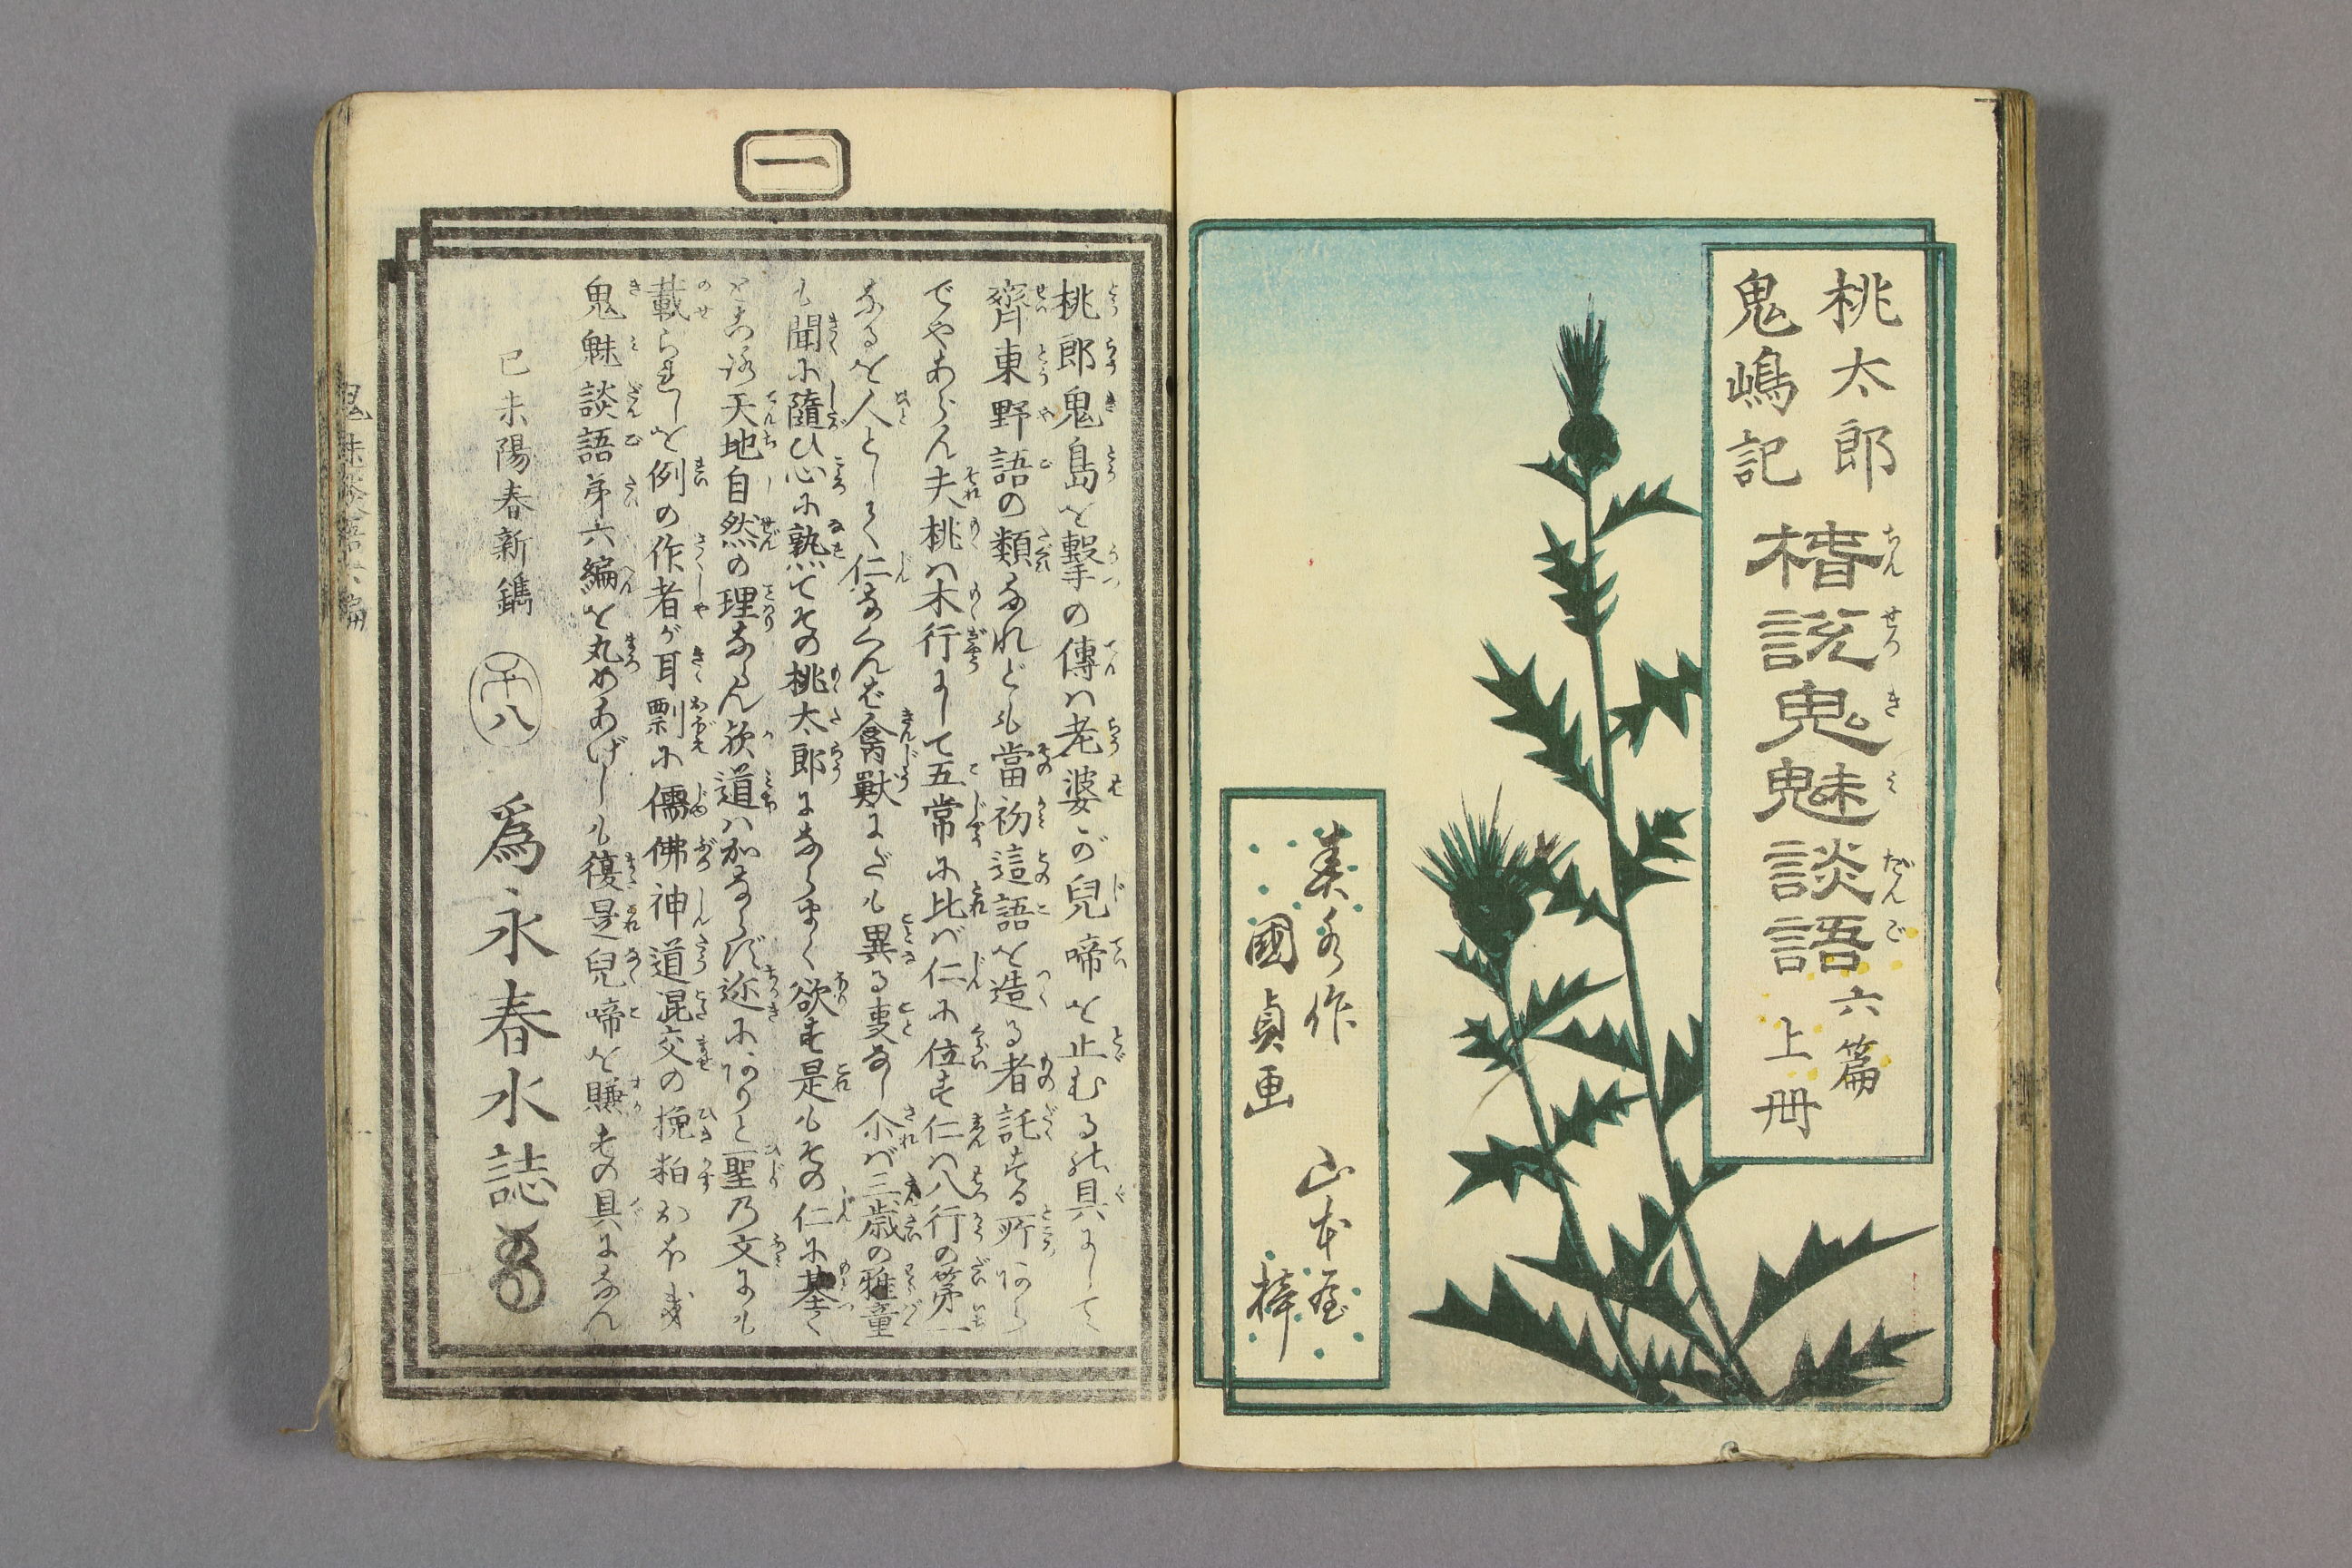 桃太郎
鬼嶋記
椿説鬼魅談語 六篇
上冊
ちんせつきみだんご
春水作
國貞画
山本屋
梓
一
桃郎鬼島を撃の傳ハ老婆が兒啼を止むるの具にして
齊東野語の類なれども當初這語を造る者託する所ありし
でやあらん夫桃ハ木行にして五常に比バ仁に位す仁ハ八行の第一
なるを人として仁なくんば禽獣にだも異る事なし尓バ三歳の稚童
も聞に隨ひ心に熟てその桃太郎にならまく欲す是もその仁に基く
ところ天地自然の理ならん歟道ハ加ならず迩にありと聖乃文にも
載られしを例の作者が耳剽に儒佛神道混交の挽粕おほき
鬼魅談語第六編を丸めあげしも復是兒啼を賺すの具になん
己未陽春新鐫
爲永春水誌
鬼魅談語六編